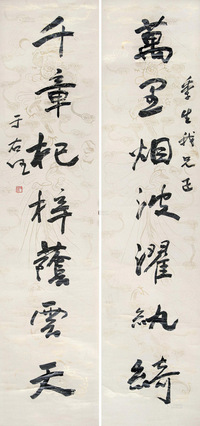 萬里烟波濯紈綺
季生我兄正
千章杞梓蔭雲天
于右任